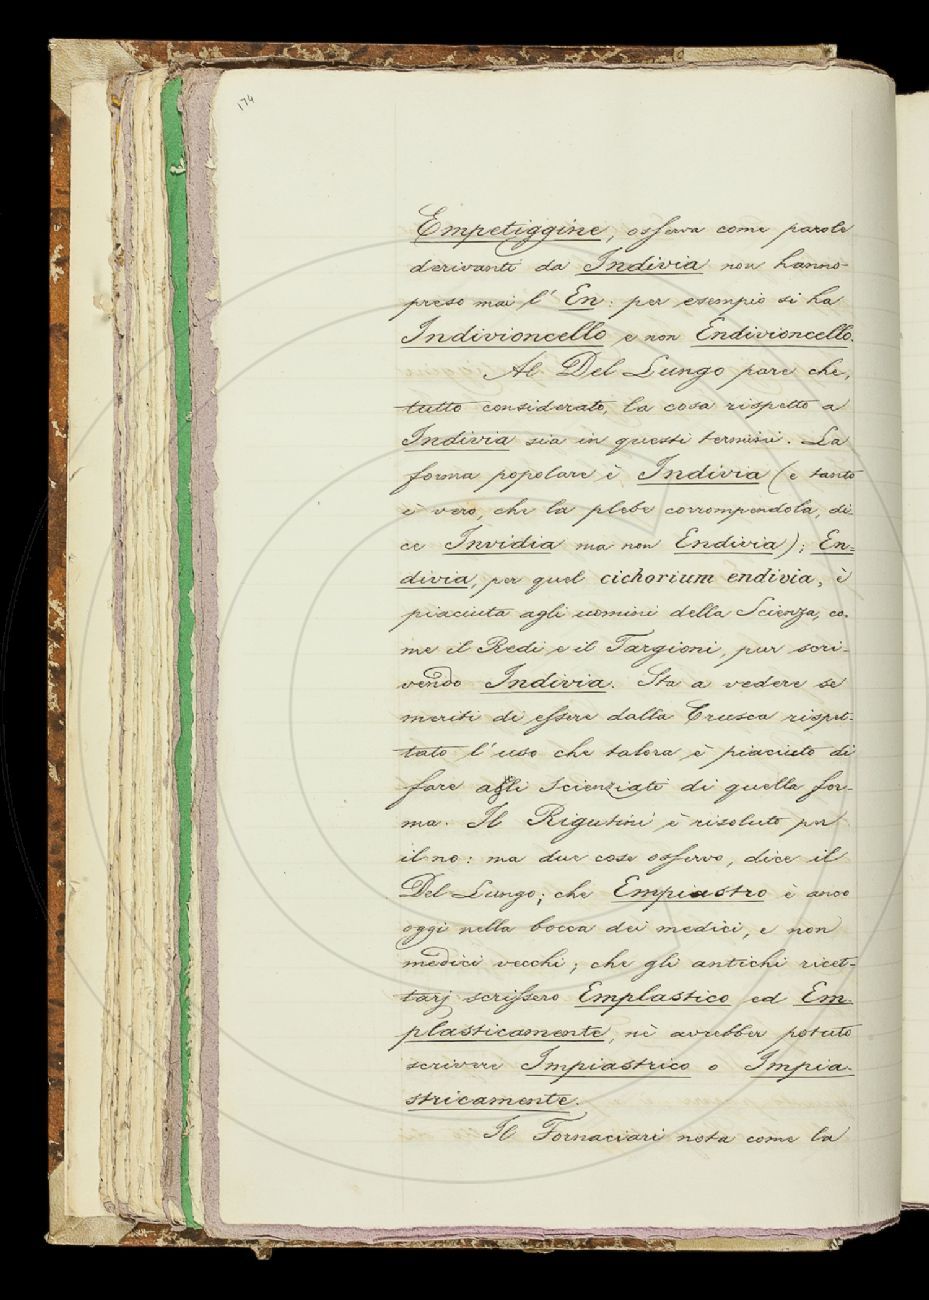 174
Empetiggine, osserva come parole
derivanti da Indivia non hanno
preso mai l' En: per esempio si ha
Indivioncello e non Endivioncello.
Al Del Lungo pare che,
tutto considerato, la cosa rispetto a
Indivia sia in questi termini. La
forma popolare è Indivia (e tanto
è vero, che la plebe corrompendola, di-
ce Invidia ma non Endivia); En=
divia, per quel cichorium endivia, è
piaciuta agli uomini della Scienza, co-
me il Redi e il Targioni, pur scri-
vendo Indivia. Sta a vedere se
meriti di essere dalla Crusca rispet-
tato l'uso che talora è piaciuto di
fare agli scienziati di quella for-
ma. Il Rigutini è risoluto per
il no: ma due cose osservo, dice il
Del Lungo; che Empiastro è anco
oggi nella bocca dei medici, e non
medici vecchi; che gli antichi ricet-
tarj scrissero Emplastico ed Em-
plasticamente, nè avrebber potuto
scrivere Impiastrico o Impia-
stricamente.
Il Fornaciari nota come la